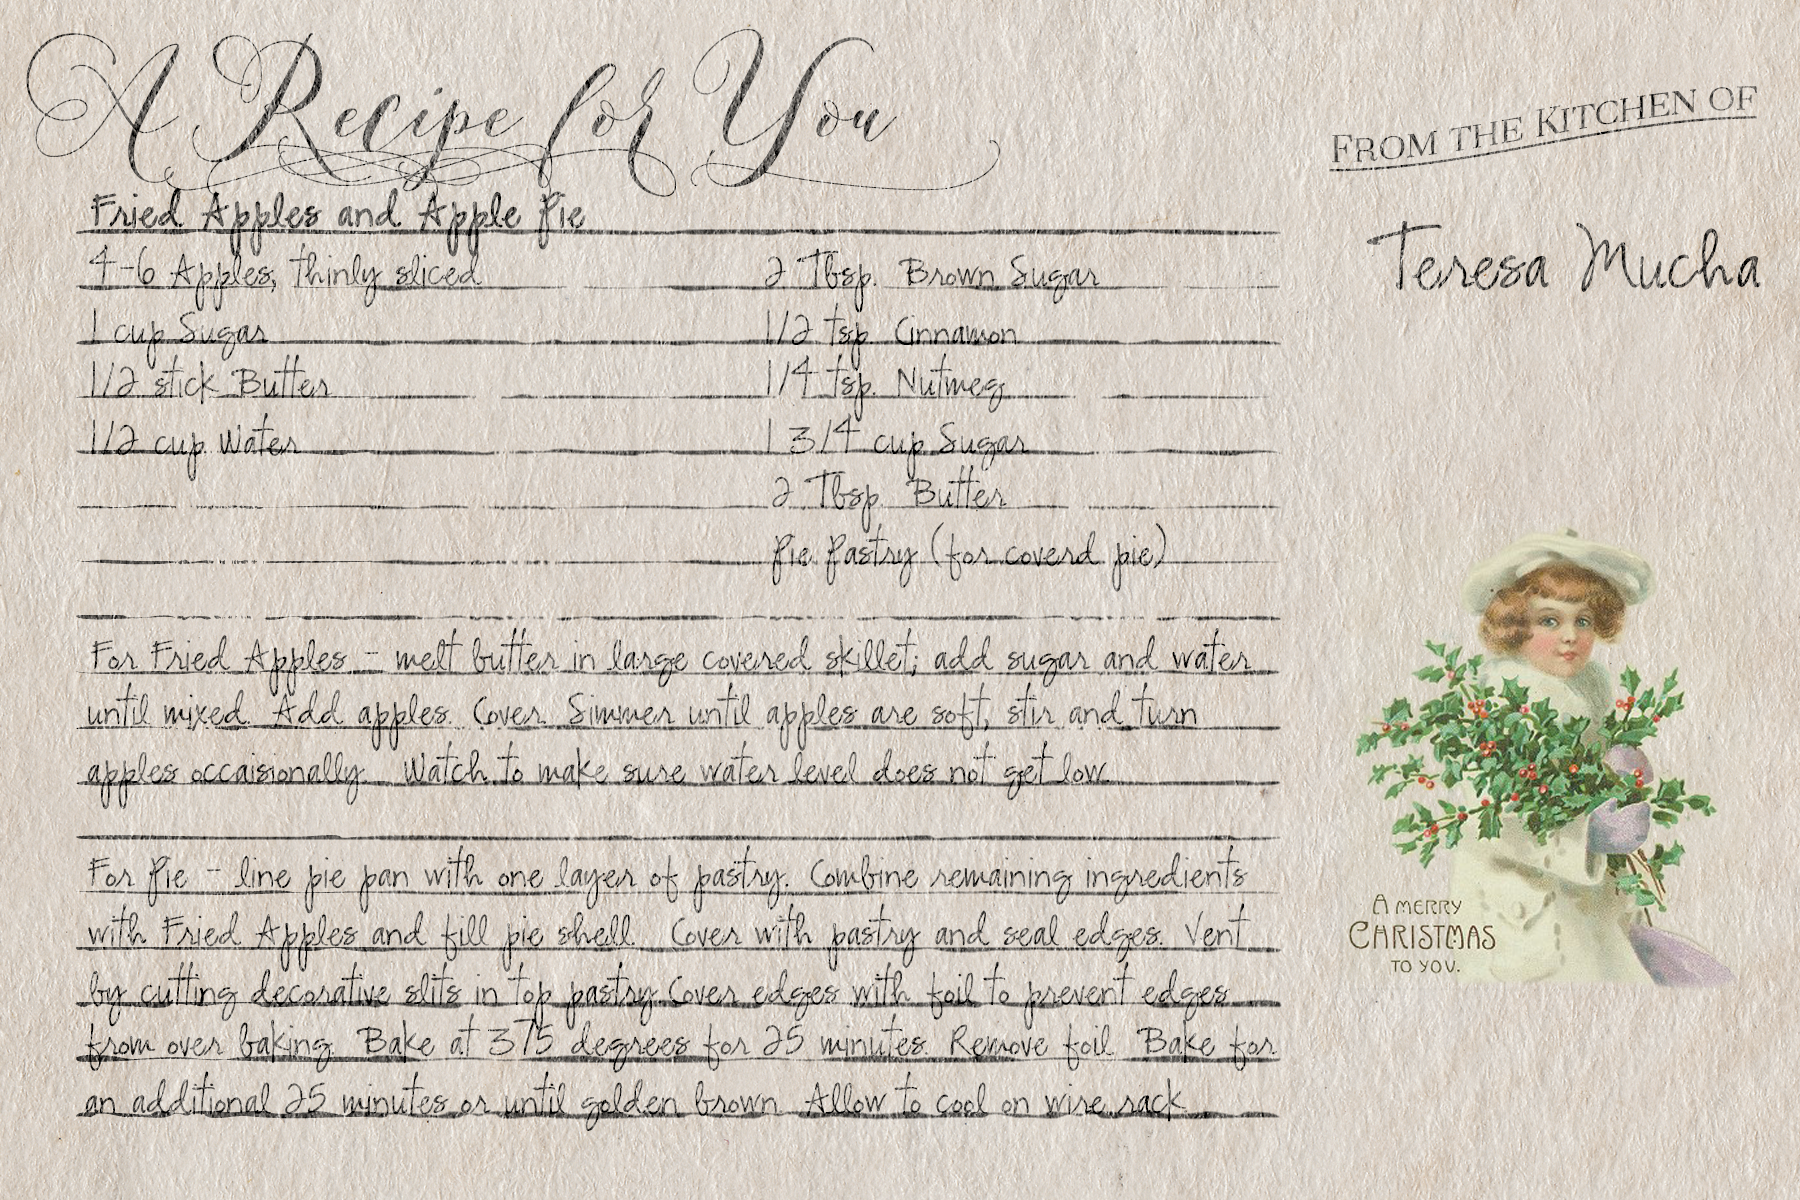 A Recipe for You
FROM THE KITCHEN OF
Teresa Mucha
Fried Apples and Apple Pie
4-6 Apples, thinly sliced
2 Tbsp. Brown Sugar
1 cup Sugar
1/2 tsp. Cinnamon
1/2 stick Butter
1/4 tsp. Nutmeg
1/2 cup Water
1 3/4 cup Sugar
2 Tbsp. Butter
Pie Pastry (for coverd pie)
For Fried Apples - melt butter in large covered skillet; add sugar and water
until mixed. Add apples. Cover. Simmer until apples are soft, stir and turn
apples occaisionally. Watch to make sure water level does not get low.
For Pie - line pie pan with one layer of pastry. Combine remaining ingredients
with Fried Apples and fill pie shell. Cover with pastry and seal edges. Vent
by cutting decorative slits in top pastry. Cover edges with foil to prevent edges
from over baking. Bake at 375 degrees for 25 minutes. Remove foil. Bake for
an additional 25 minutes or until golden brown. Allow to cool on wire rack.
A MERRY
CHRISTMAS
TO YOU.